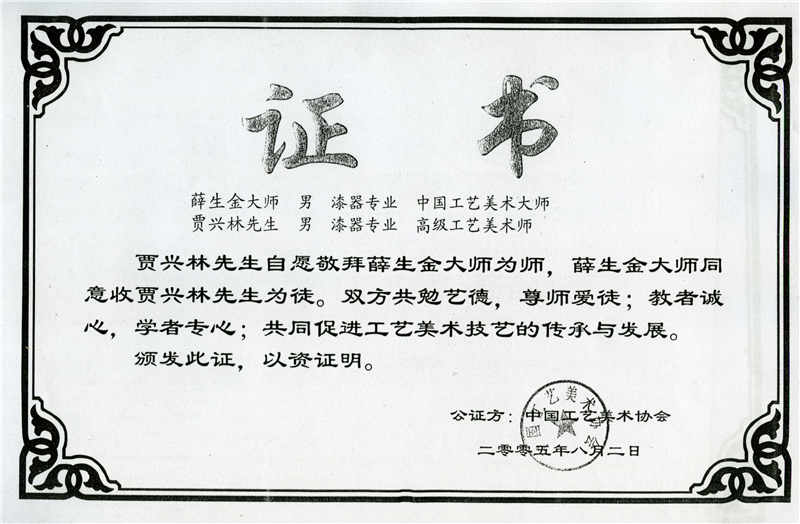 证 书
薛生金大师 男 漆器专业 中国工艺美术大师
贾兴林先生 男 漆器专业 高级工艺美术师
贾兴林先生自愿敬拜薛生金大师为师，薛生金大师同
意收贾兴林先生为徒。双方共勉艺德，尊师爱徒；教者诚
心，学者专心；共同促进工艺美术技艺的传承与发展。
颁发此证，以资证明。
公证方：中国工艺美术协会
二零零五年八月二日